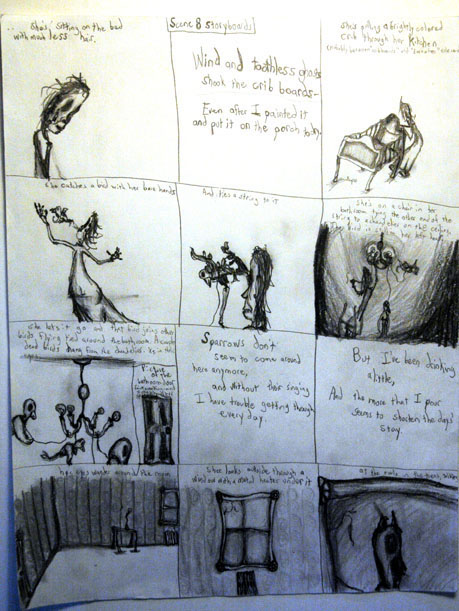 She's sitting on the bed
with much less hair.
Scene 8 storyboards
Wind and toothless ghosts
shook the crib boards-
Even after I painted it
and put it on the porch today.
She's pulling a brightly colored
crib through her Kitchen
She catches a bird with her bare hands
And ties a string to it
She's on a chair in the
bathroom tying the other end of the
string to a chandelier on the ceiling.
The bird is
she lets it go and
other
birds, flying tied around the bathroom. A couple
dead birds hang from the chandelier.
of the
bathroom door
Sparrows don't
seem to come around
here anymore,
and without their singing
I have trouble getting through
every day.
But I've been drinking
a little,
And the more that I pour
seems to shorten the days'
stay.
her eyes wander around the room
She looks outside through a
window with a metal heater under it
at the owls in the trees,